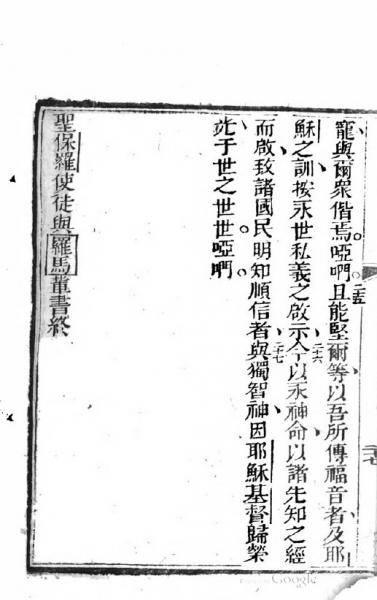 寵與爾衆偕焉。啞啊。二五且能堅爾等以吾所傳福音者及耶
穌之訓按永世私義之啟示二六今以永神命以諸先知之經
而啟致諸國民明知順信者二七與獨智神因耶穌基督歸榮
光于世之世世啞啊。
聖保羅使徒與羅馬輩書終
二十七
Google